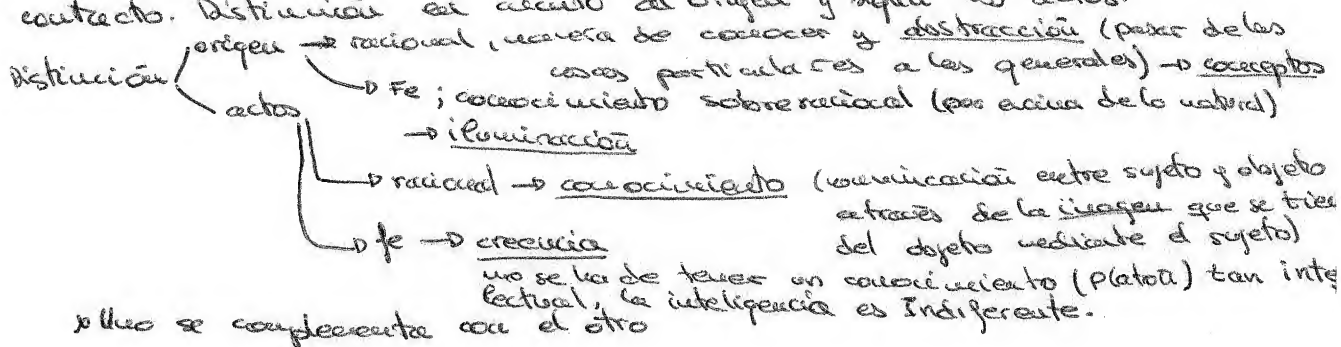 contacto. Distinción en cuanto al origen y según los actos.
Distinción origen → racional, manera de conocer y abstracción (pasar de las
cosas particulares a las generales) → conceptos
→ Fe ; conocimiento sobreracional (por encima de lo natural)
→ iluminación
actos
→ racional → conocimiento (comunicación entre sujeto y objeto
a través de la imagen que se tiene
del objeto mediante el sujeto)
→ fe → creencia
no se ha de tener un conocimiento (Platón) tan inte
lectual, la inteligencia es Indiferente.
Uno se complementa con el otro